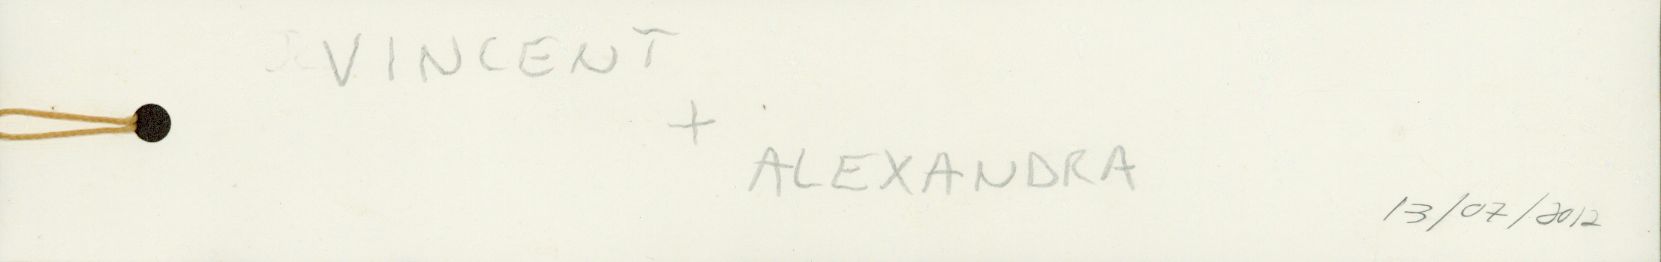 VINCENT
+
ALEXANDRA
13/07/2012